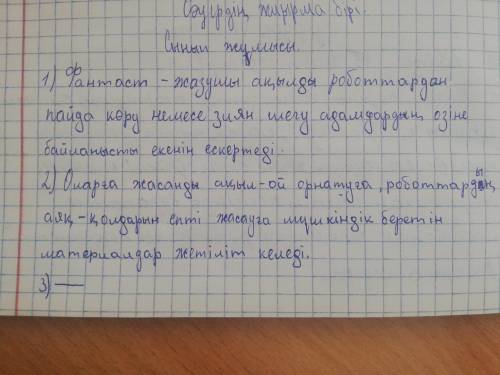 Сәуірдің жиырма бірі.
Сынып жұмысы.
1) Фантаст - жазушы ақылды роботтардан
пайда көру немесе зиян шегу адамдардың өзіне
байланысты екенін ескертеді.
2) Оларға жасанды ақыл-ой орнатуға, роботтардың
аяқ-қолдарын епті жасауға мүшкіндік беретін
материалдар жетіліп келеді.
3) —